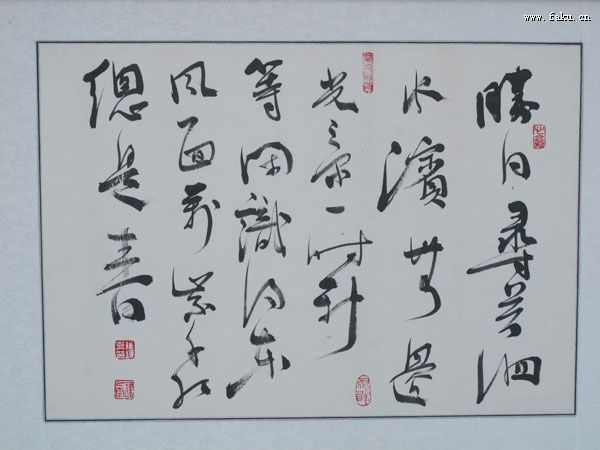 www.faku.cn
勝日尋芳泗
水濱無邊
光景一時新
等閑識得東
風面萬紫千紅
總是春